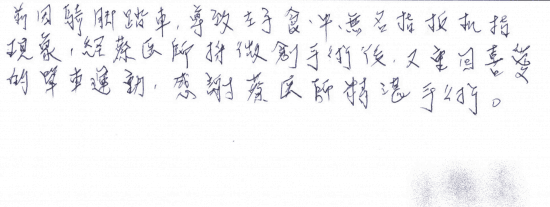 前因騎脚踏車,導致左手食、中、無名指扳机指
現象,經蔡医師持微創手術後,又重回喜愛
的單車運動,感謝蔡医師精湛手術。